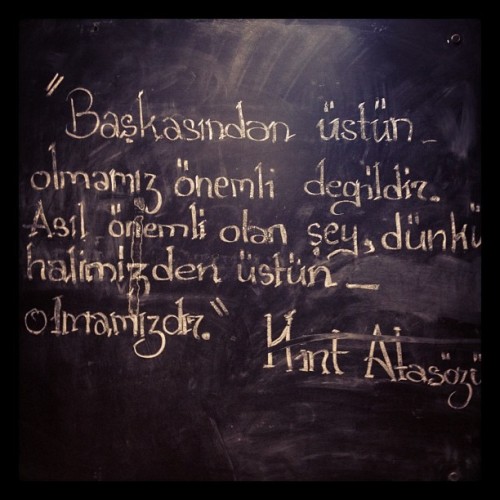 "Başkasından üstün_
olmamız önemli degildir.
Asıl önemli olan şey, dünkü
halimizden üstün_
olmamızdır."
Hint Atasözü